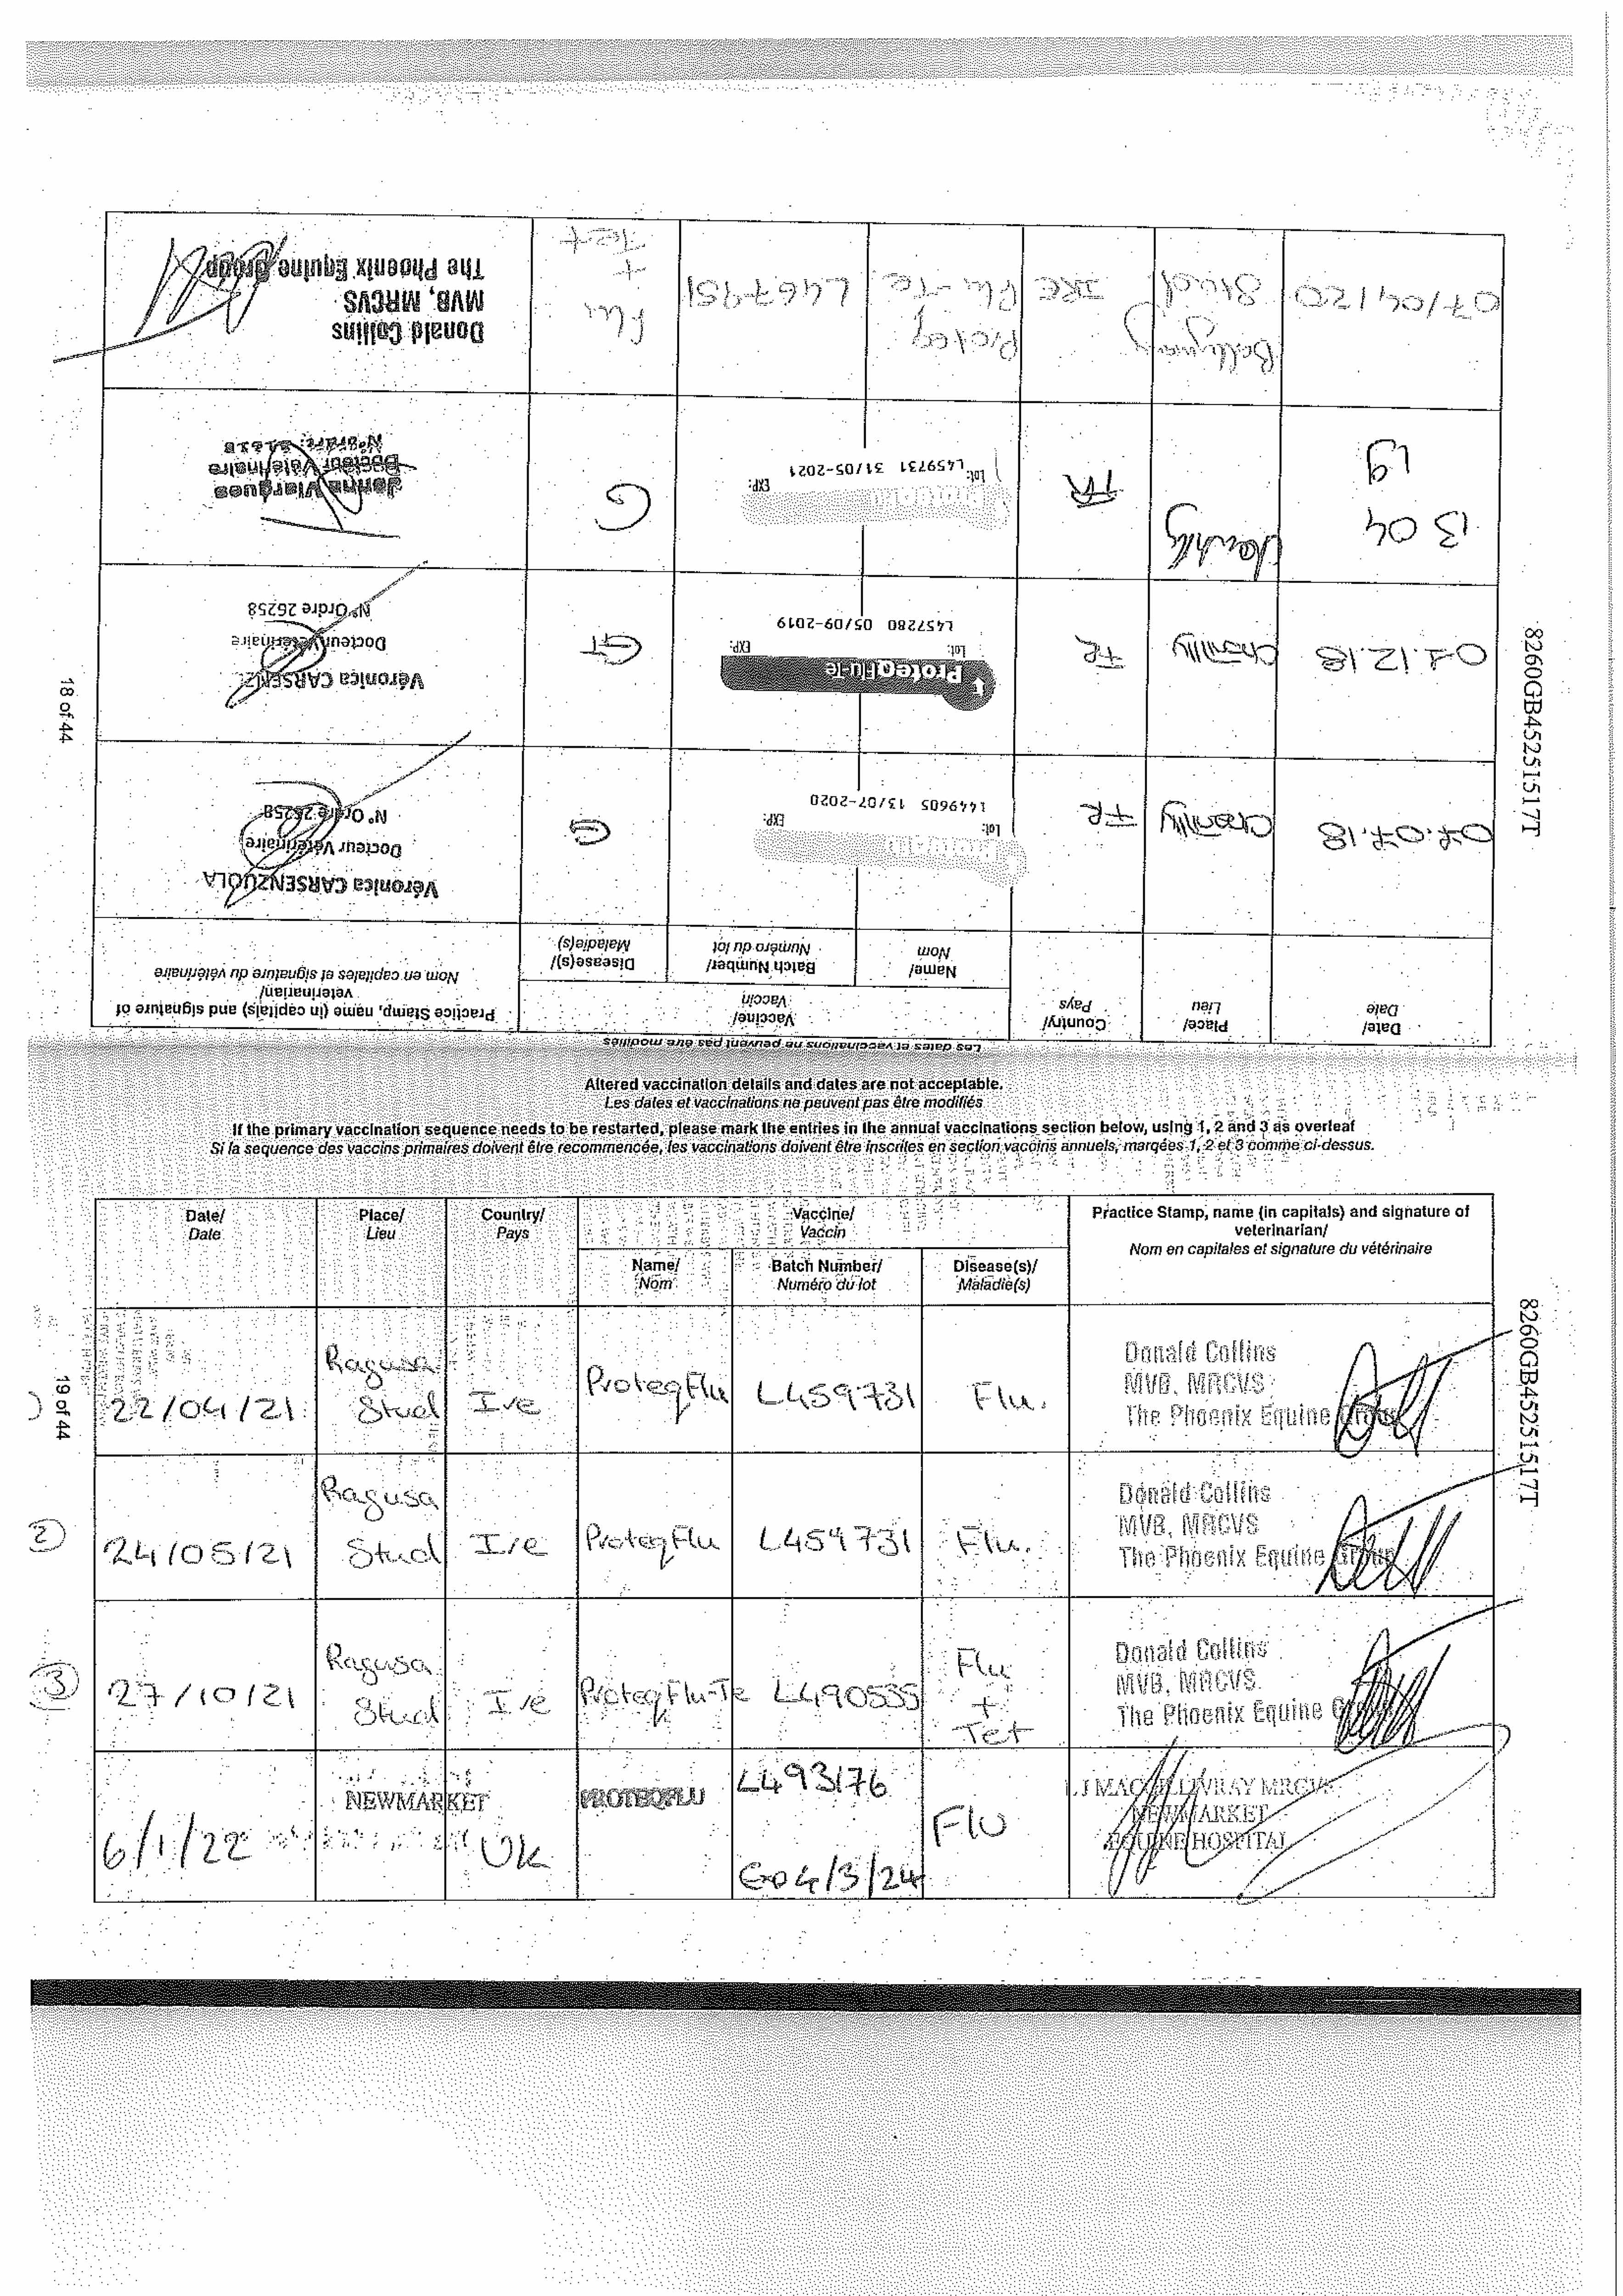 18 of 44
8260GB45251517T
Date/
Date
Place/
Lieu
Country/
Pays
Vaccine/
Vaccin
Name/
Nom
Batch Number/
Numéro du lot
Disease(s)/
Maladie(s)
Practice Stamp, name (in capitals) and signature of
veterinarian/
Nom en capitales et signature du vétérinaire
07.07.18
Chantilly
FR
Lot: EXP:
L449605 13/07-2020
G
Véronica CARSENZUOLA
Docteur Vétérinaire
N° Ordre 26258
01.12.18
Chantilly
FR
ProteqFlu-Te
Lot: EXP:
L457280 05/09-2019
GT
Véronica CARSENZ
Docteur Vétérinaire
N° Ordre 26258
13 04
19
FR
Lot: EXP:
L459731 31/05-2021
G
Docteur Vétérinaire
07/04/20
Stud
IRE
Proteq
Flu-Te
L467951
Flu
+
Tet
Donald Collins
MVB, MRCVS
The Phoenix Equine Group
Les dates et vaccinations ne peuvent pas être modifiés
Altered vaccination details and dates are not acceptable.
Les dates et vaccinations ne peuvent pas être modifiés
If the primary vaccination sequence needs to be restarted, please mark the entries in the annual vaccinations section below, using 1, 2 and 3 as overleaf
Si la sequence des vaccins primaires doivent être recommencée, les vaccinations doivent être inscrites en section vaccins annuels, marquées 1, 2 et 3 comme ci-dessus.
Date/
Date
Place/
Lieu
Country/
Pays
Vaccine/
Vaccin
Name/
Nom
Batch Number/
Numéro du lot
Disease(s)/
Maladie(s)
Practice Stamp, name (in capitals) and signature of
veterinarian/
Nom en capitales et signature du vétérinaire
19 of 44
8260GB45251517T
22/04/21
Ragusa
Stud
Ire
ProteqFlu
L459731
Flu.
Donald Collins
MVB, MRCVS
The Phoenix Equine Group
2
24/05/21
Ragusa
Stud
Ire
ProteqFlu
L459731
Flu.
Donald Collins
MVB, MRCVS
The Phoenix Equine Group
3
27/10/21
Ragusa
Stud
Ire
ProteqFlu-Te
L490535
Flu
+
Tet
Donald Collins
MVB, MRCVS
The Phoenix Equine
6/1/22
NEWMARKET
UK
PROTEQFLU
L493176
4/3/24
Flu
MRCVS
NEWMARKET
EQUINE HOSPITAL